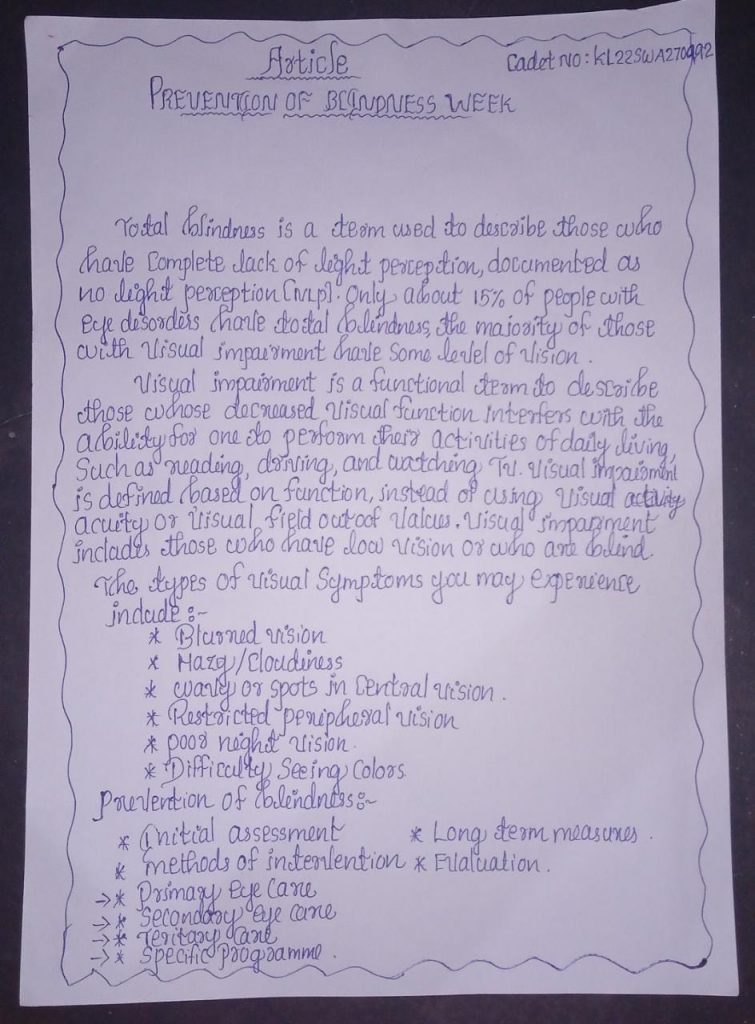 Article
Cadet No : KL22SWA270992
PREVENTION OF BLINDNESS WEEK
Total blindness is a term used to describe those who
have Complete lack of light perception, documented as
no light perception [NLP]. Only about 15% of people with
eye disorders have total blindness, the majority of those
with Visual impairment have Some level of Vision .
Visual impairment is a functional term to describe
those whose decreased Visual function Interfers with the
ability for one to perform their activities of daily living,
Such as reading, driving, and watching TV. Visual impairment
is defined based on function, instead of using Visual activity
acuity or Visual field out of Values. Visual impairment
includes those who have low Vision or who are blind.
The types of Visual Symptoms you may experience
include :-
* Blurred vision
* Hazy/Cloudiness
* wavy or spots in Central vision .
* Restricted peripheral vision
* poor night Vision.
* Difficulty Seeing Colors
Prevention of blindness:-
* Initial assessment * Long term measures .
* methods of intervention * Evaluation .
→* Primary eye Care
→* Secondary eye care
→* Teritary Care
→* Specific Programme .